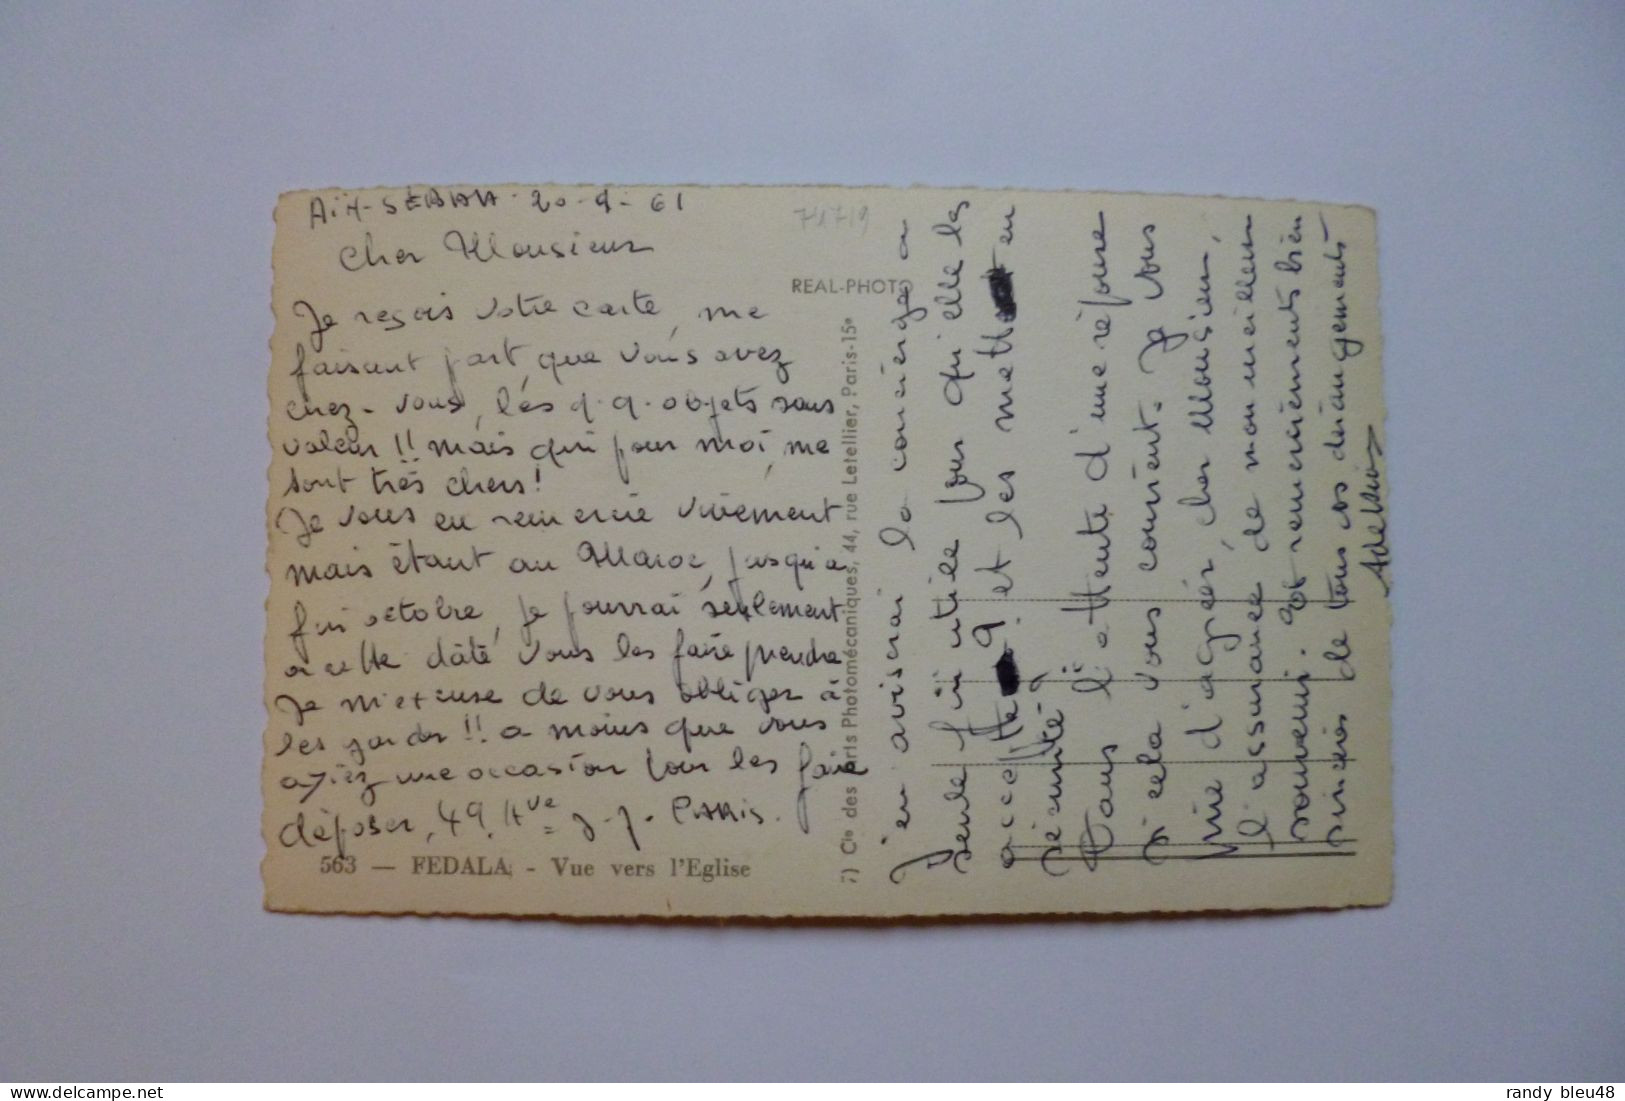 AïN-SEBAA - 20-9-61
Cher Monsieur
Je reçois votre carte, me
faisant part que vous avez
chez-vous, les q.q. objets sans
valeur!! mais qui pour moi, me
sont très chers!
Je vous en remercie vivement
mais étant au Maroc, jusqu'à
fin octobre, je pourrai seulement
à cette dâte vous les faire prendre
Je m'excuse de vous obliger à
les garder!! a moins que vous
ayiez une occasion pour les faire
déposer, 49. Ave J.J. PARIS.
563 — FEDALA - Vue vers l'Eglise
71719
REAL-PHOTO
Cie des Arts Photomécaniques, 44, rue Letellier, Paris-15e
J'en aviserai la concierge a
seule fin utile pour qu'elle les
accepte et les mette en
sécurité
Dans l'attente d'une réponse
si cela vous convient. Je vous
prie d'agréer, cher Monsieur,
l'assurance de mon meilleur
souvenir. Et remerciements bien
sincères de tous vos dérangements
randy bleu48